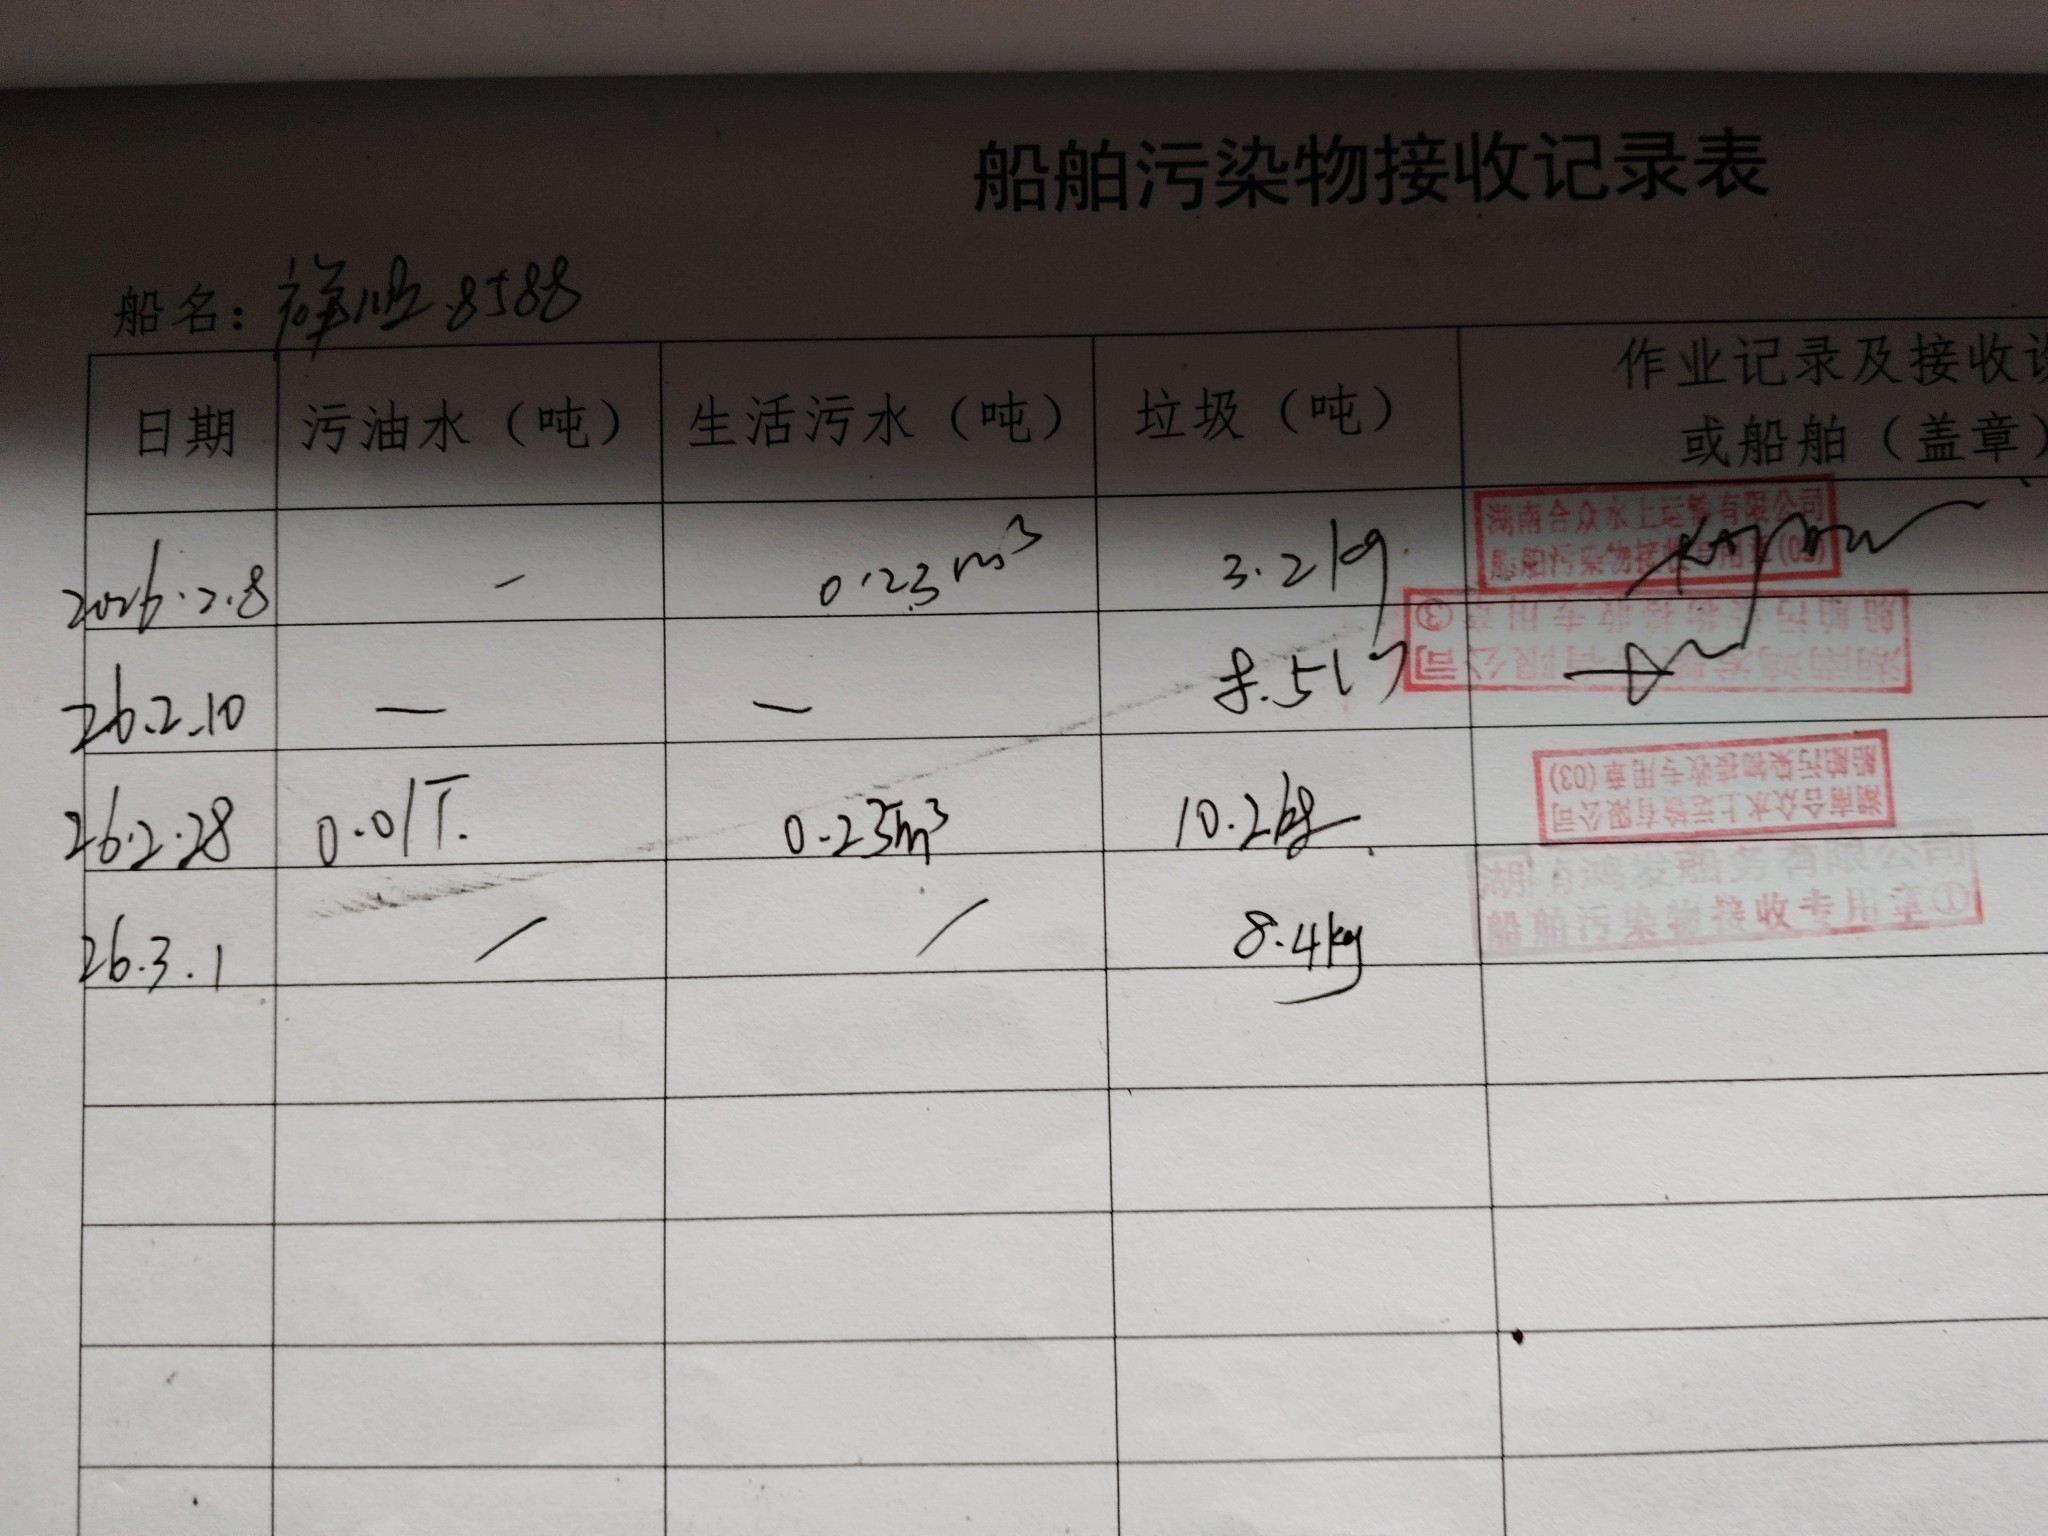 船舶污染物接收记录表
船名：祥顺8588
日期 污油水（吨） 生活污水（吨） 垃圾（吨） 作业记录及接收
或船舶（盖章）
2026.2.8 - 0.23m³ 3.2kg
湖南合众水上运输有限公司
船舶污染物接收专用章(02)
26.2.10 — — 8.5kg
船舶污染物接收专用章③
湖南鸿发船务有限公司
26.2.28 0.01T. 0.23m³ 10.2kg
湖南合众水上运输有限公司
船舶污染物接收专用章(03)
26.3.1 / / 8.4kg
湖南鸿发船务有限公司
船舶污染物接收专用章①